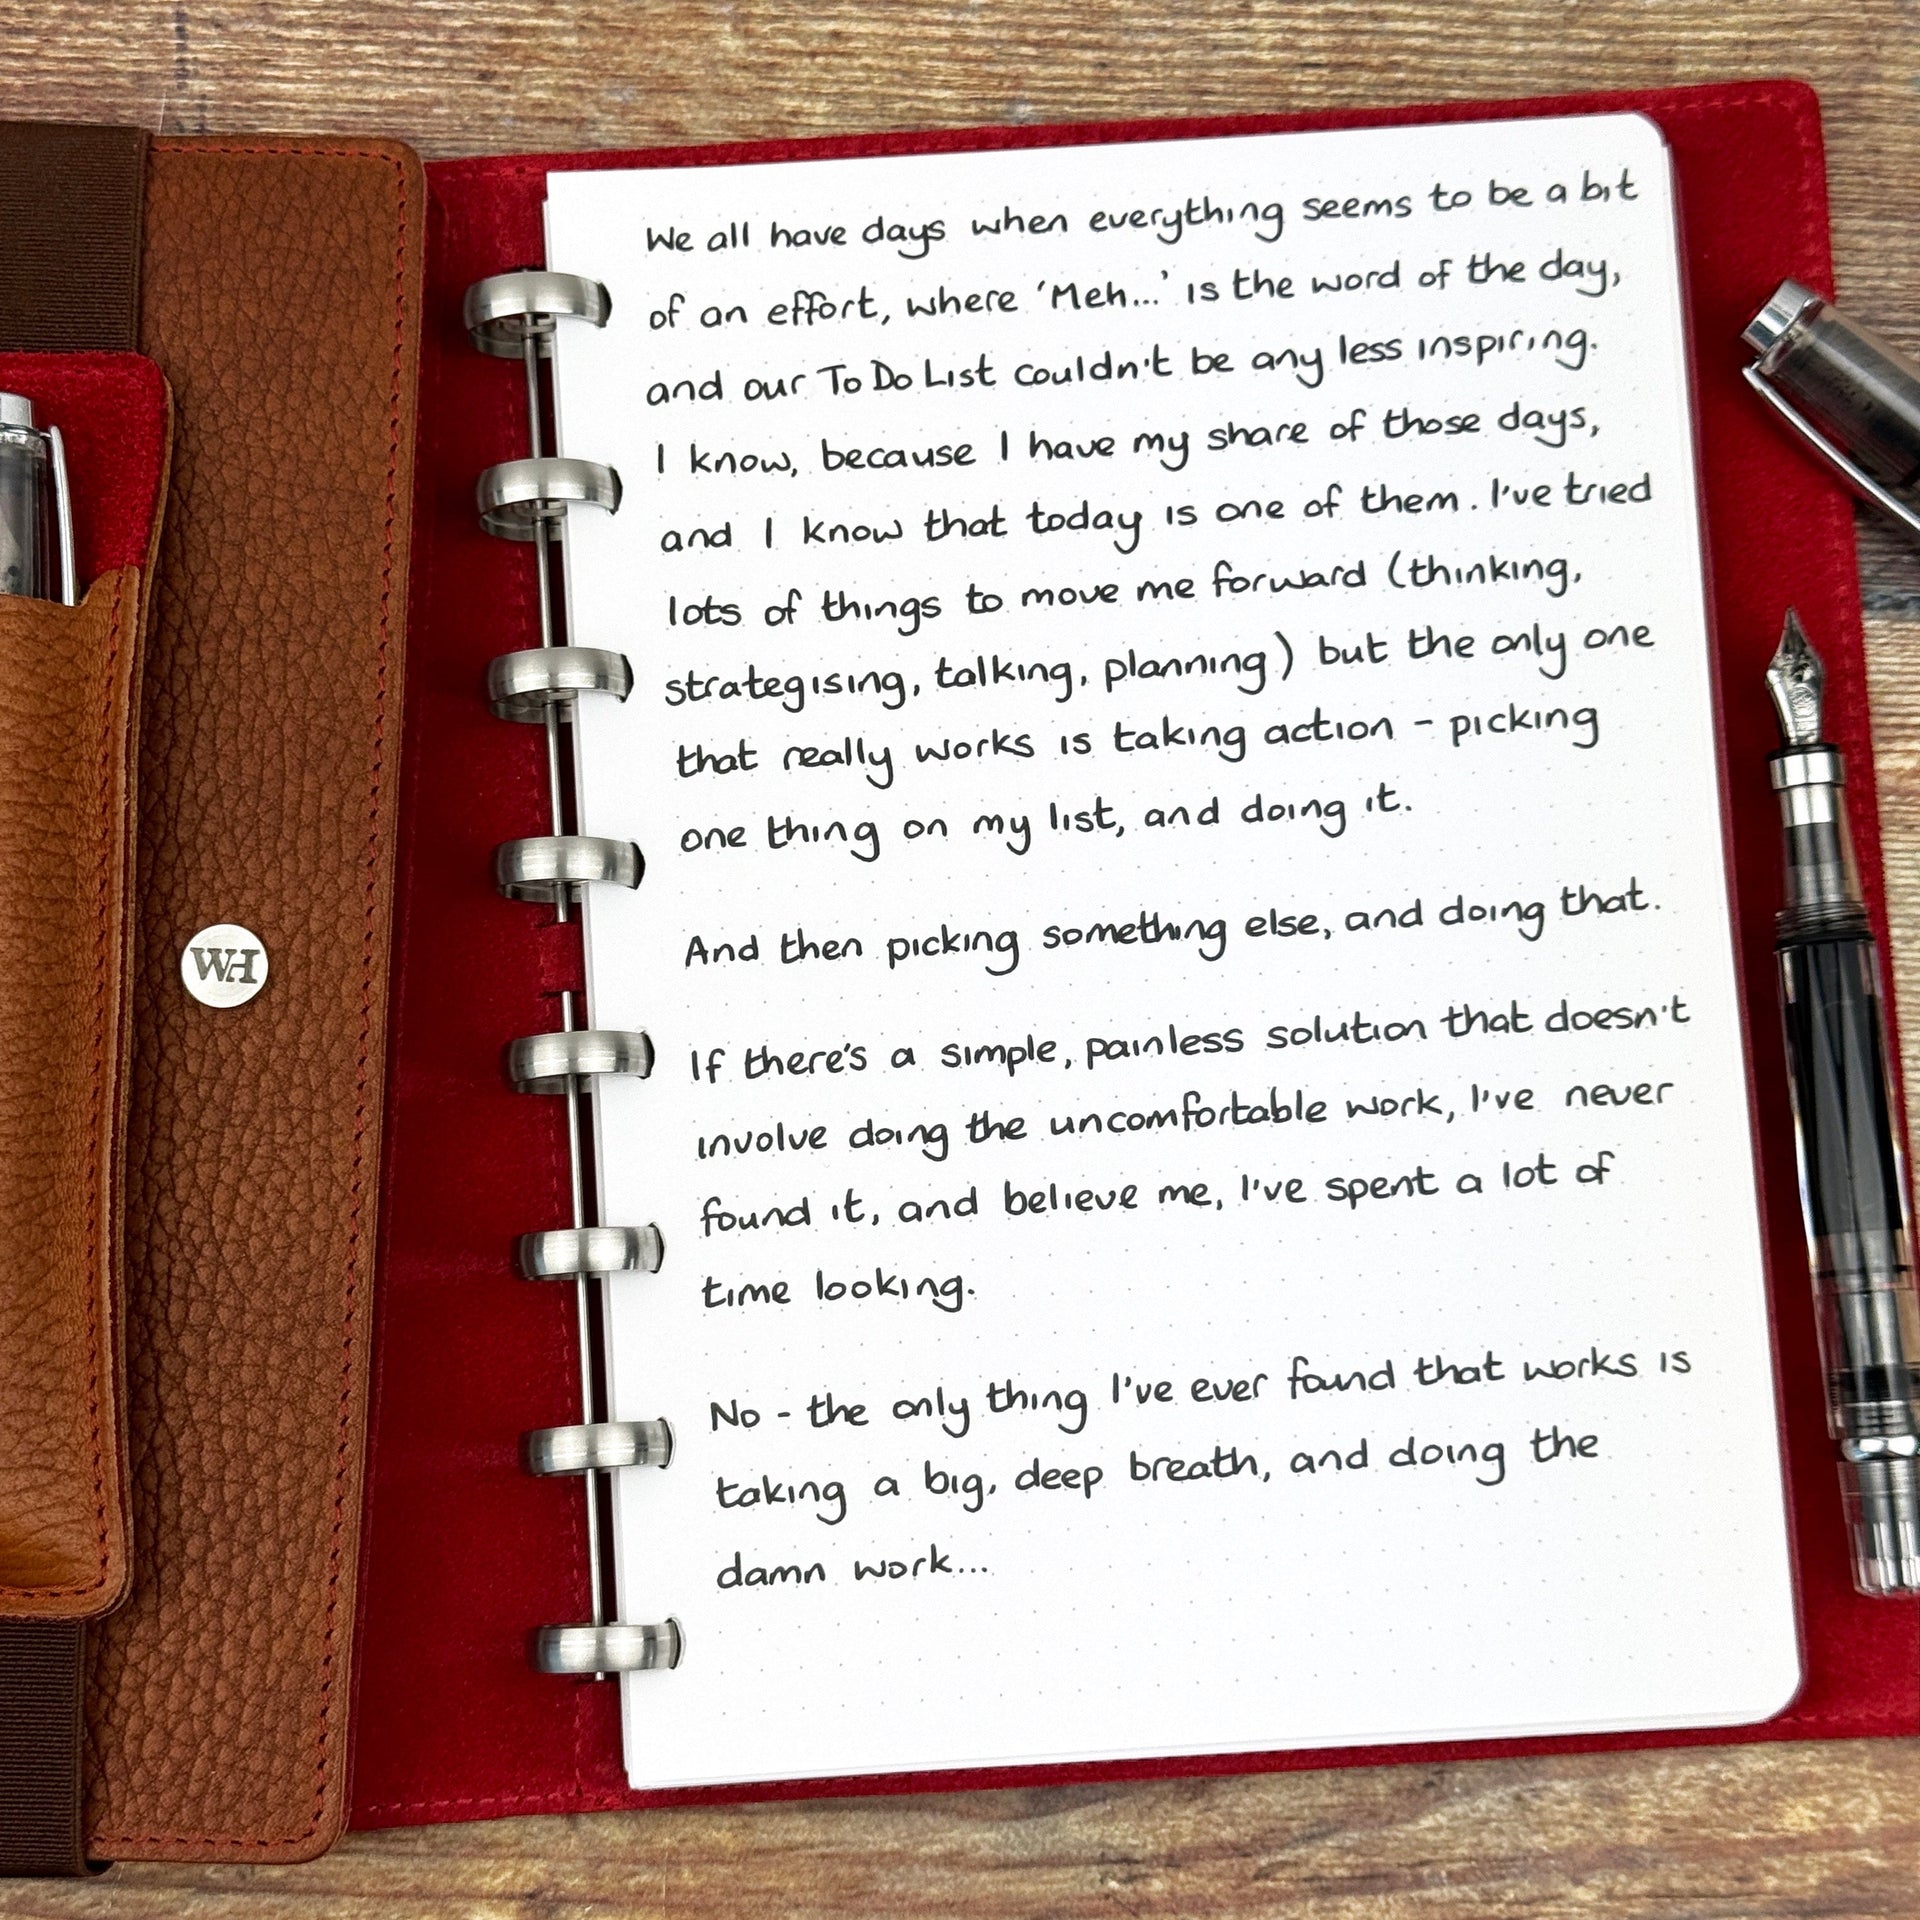 We all have days when everything seems to be a bit
of an effort, where 'Meh...' is the word of the day,
and our To Do List couldn't be any less inspiring.
I know, because I have my share of those days,
and I know that today is one of them. I've tried
lots of things to move me forward (thinking,
strategising, talking, planning) but the only one
that really works is taking action - picking
one thing on my list, and doing it.
And then picking something else, and doing that.
If there's a simple, painless solution that doesn't
involve doing the uncomfortable work, I've never
found it, and believe me, I've spent a lot of
time looking.
No - the only thing I've ever found that works is
taking a big, deep breath, and doing the
damn work...
WH